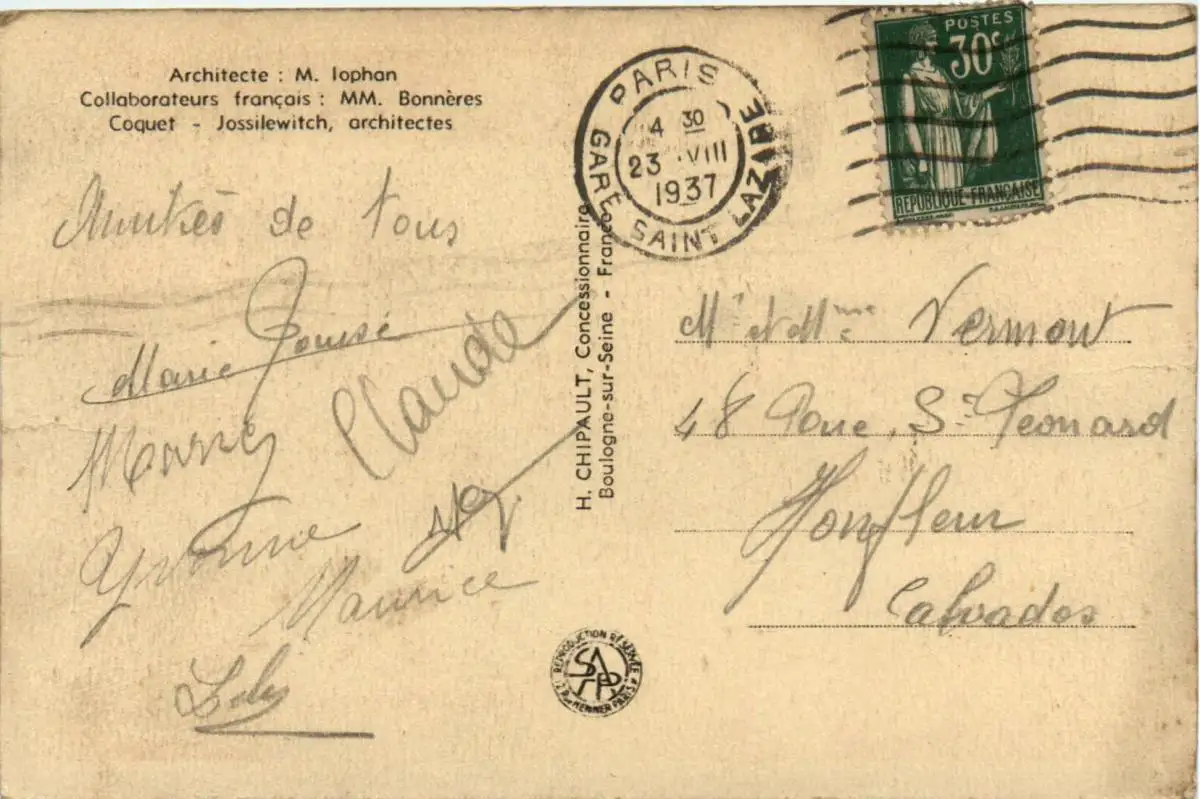 Architecte : M. Iophan
Collaborateurs français : MM. Bonnères
Coquet - Jossilewitch, architectes
PARIS
GARE SAINT LAZARE
4 30
23 VIII
1937
POSTES
30c
REPUBLIQUE-FRANÇAISE
Amitiés de tous
Marie Louise
Claude
Yvonne
Maurice
H. CHIPAULT, Concessionnaire
Boulogne-sur-Seine - France
Mr et Mme Vermont
48 Rue St Leonard
Honfleur
Calvados
REPRODUCTION RÉSERVÉE
SAPP
PARIS